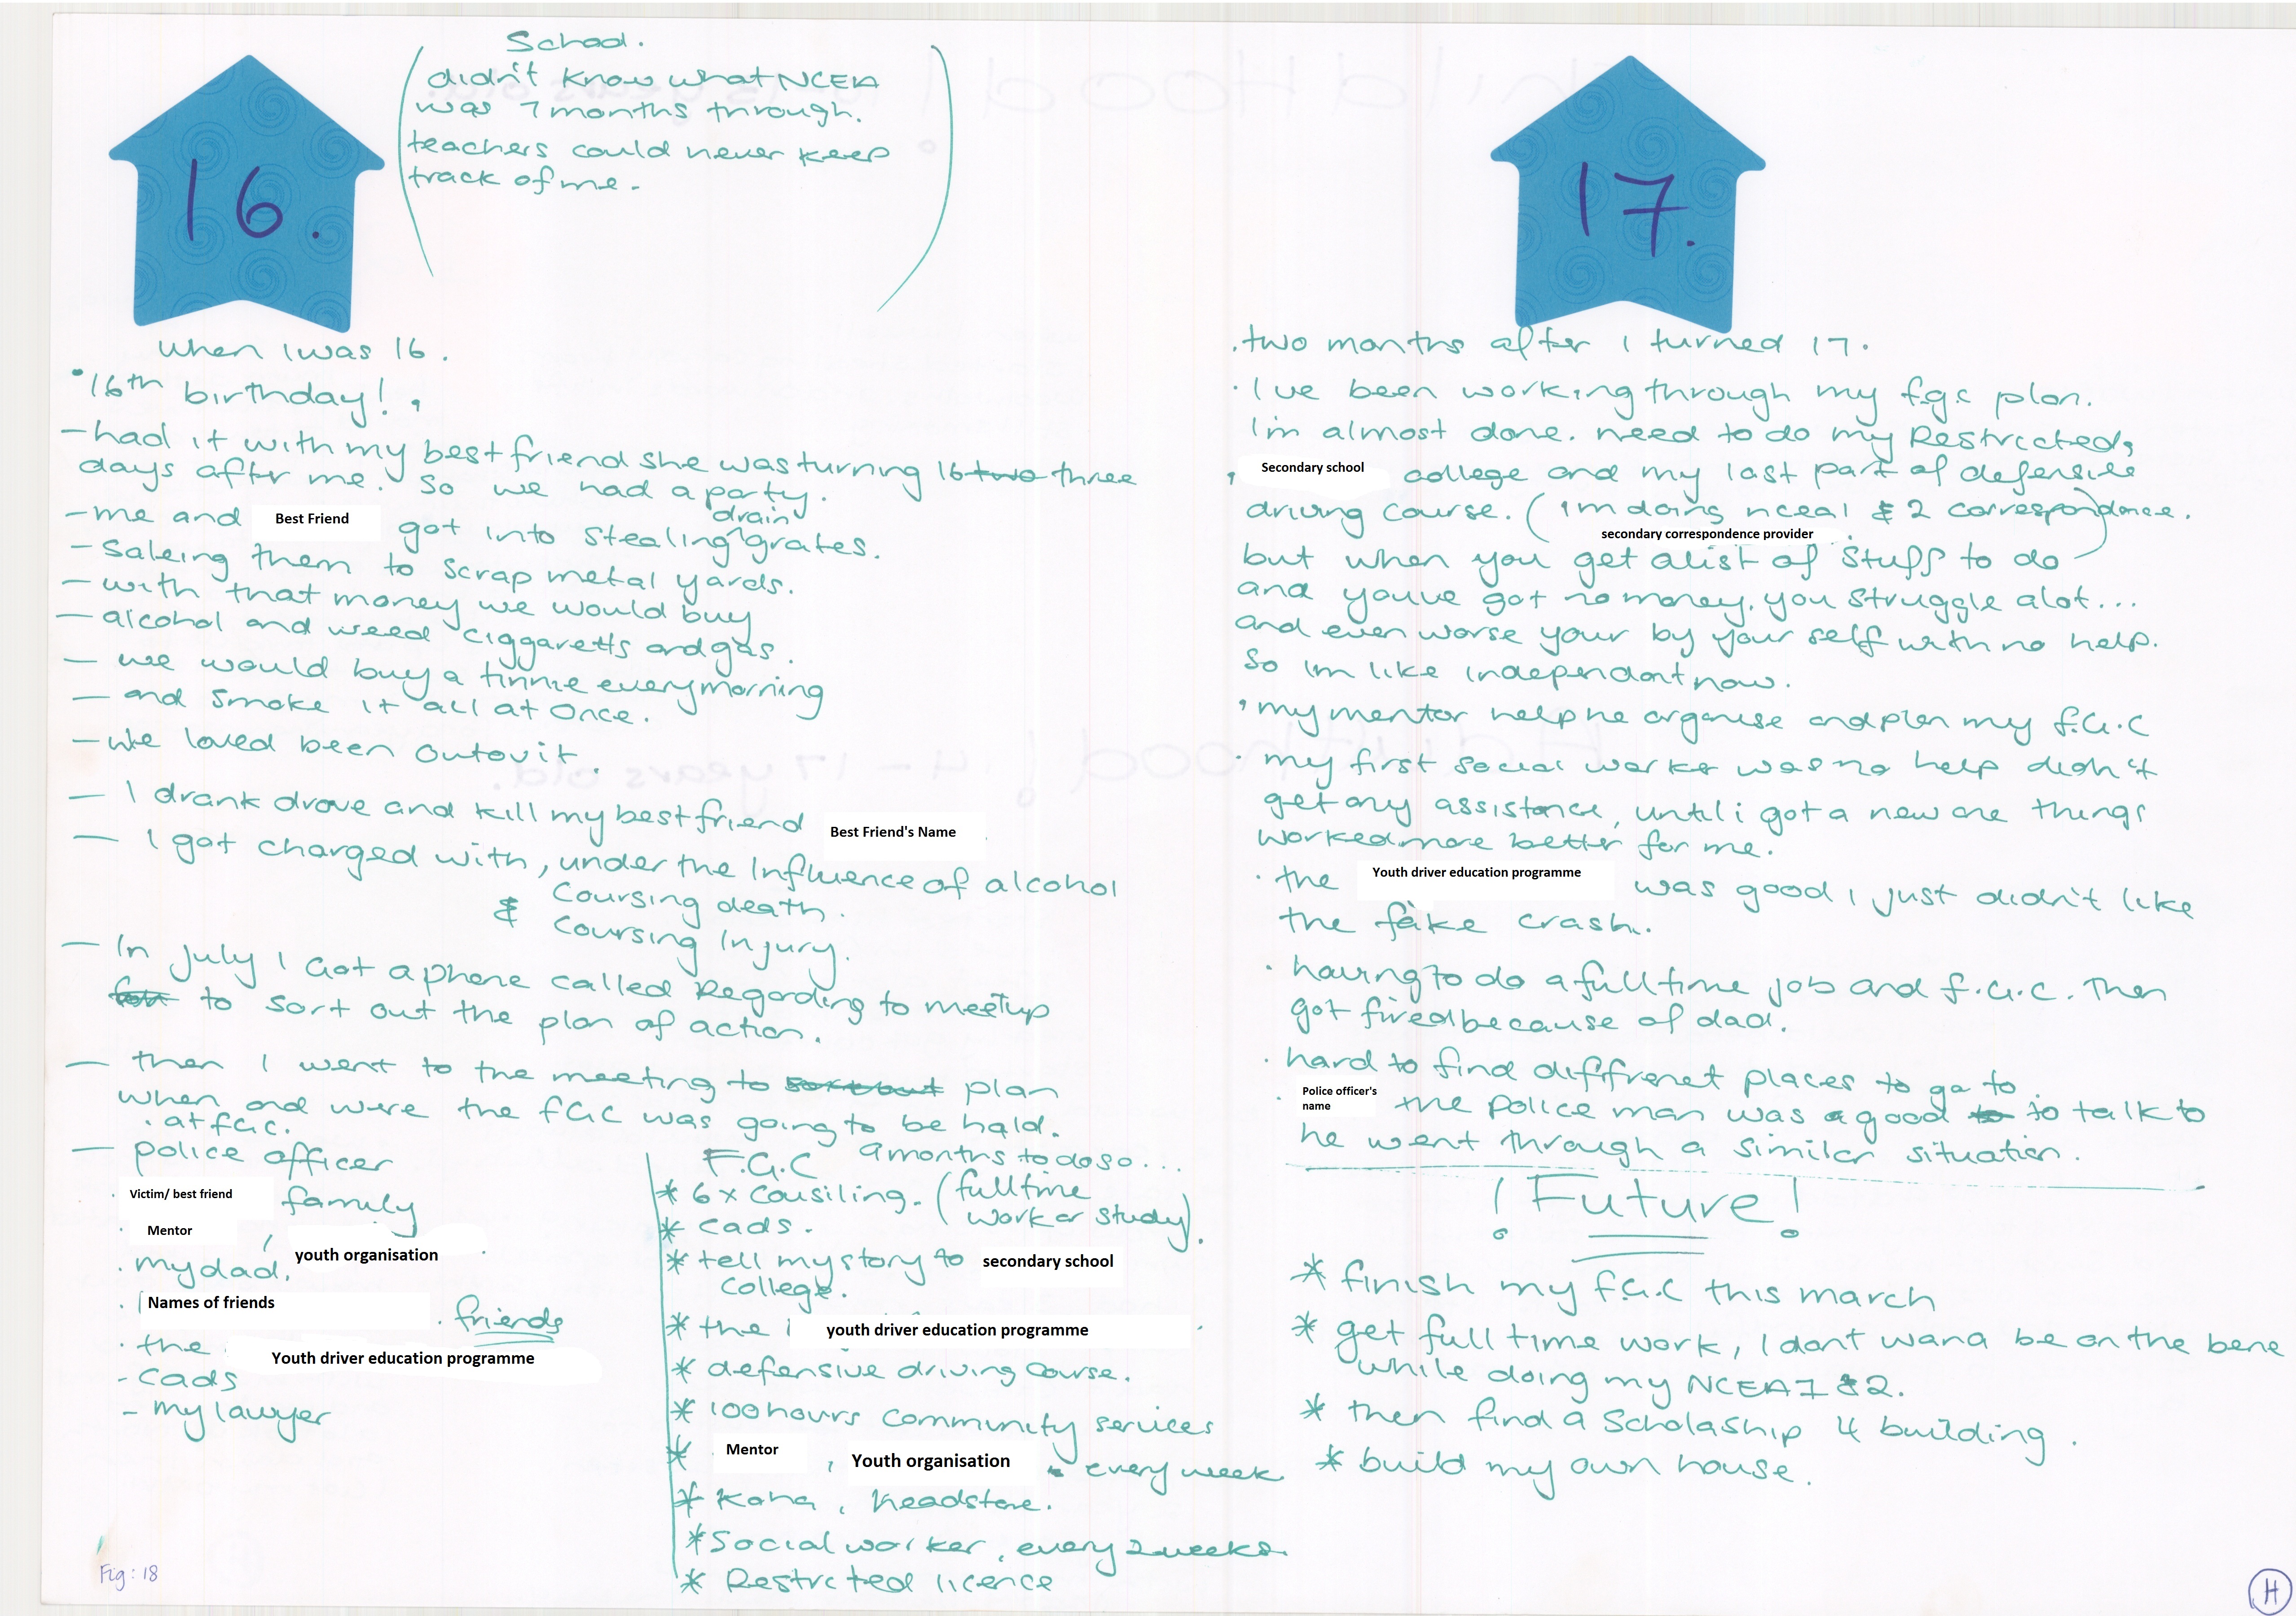 16.
School.
didn't know what NCEA
was 7 months through.
teachers could never keep
track of me.
when I was 16.
• 16th birthday!.
– had it with my best friend she was turning 16 two three
days after me. So we had a party.
– me and Best Friend got into stealing drain grates.
– Saleing them to scrap metal yards.
– with that money we would buy
– alcohol and weed ciggaretts and gas.
– we would buy a tinnie every morning
– and smoke it all at once.
– We loved been outovit.
– I drank drove and kill my best friend Best Friend's Name
– I got charged with, under the Influence of alcohol
& Coursing death.
Coursing Injury.
– In July I Got a phone called Regarding to meetup
to sort out the plan of action.
– then I went to the meeting to sort out plan
when and were the fGc was going to be hald.
• at fGc.
– police officer
• Victim/ best friend family
• Mentor, youth organisation
• my dad.
• Names of friends . friends
• the Youth driver education programme
- Cads
- my lawyer
F.G.C 9 months to do so...
* 6 x Cousiling. (full time
work or study).
* Cads.
* tell my story to secondary school
College.
* the youth driver education programme
* defensive driving course.
* 100 hours community services
* Mentor, Youth organisation - every week
* Koha, headstone.
* Social worker, every 2 weeks.
* Restrcted licence
Fig: 18
17.
. two months after I turned 17.
• I ve been working through my f.g.c plan.
I'm almost done. need to do my Restricted,
, Secondary school college and my last part of defensive
driving course. (I'm doing ncea 1 & 2 correspondance.
secondary correspondence provider)
but when you get a list of stuff to do
and youve got no money, you struggle alot...
and even worse your by your self with no help.
So Im like independant now.
• my mentor help me organise and plan my f.G.C
• my first social worker was no help didn't
get any assistance, until i got a new one things
worked more better for me.
• the Youth driver education programme was good I just didn't like
the fake crash.
• having to do a full time job and f.G.C. Then
got fired because of dad.
• hard to find diffrenet places to go to
• Police officer's name the Police man was a good to to talk to
he went through a similar situation.
! Future!
* finish my f.G.C this march
* get full time work, I dont wana be on the bene
while doing my NCEA 1 & 2.
* then find a Scholaship 4 building.
* build my own house.
H